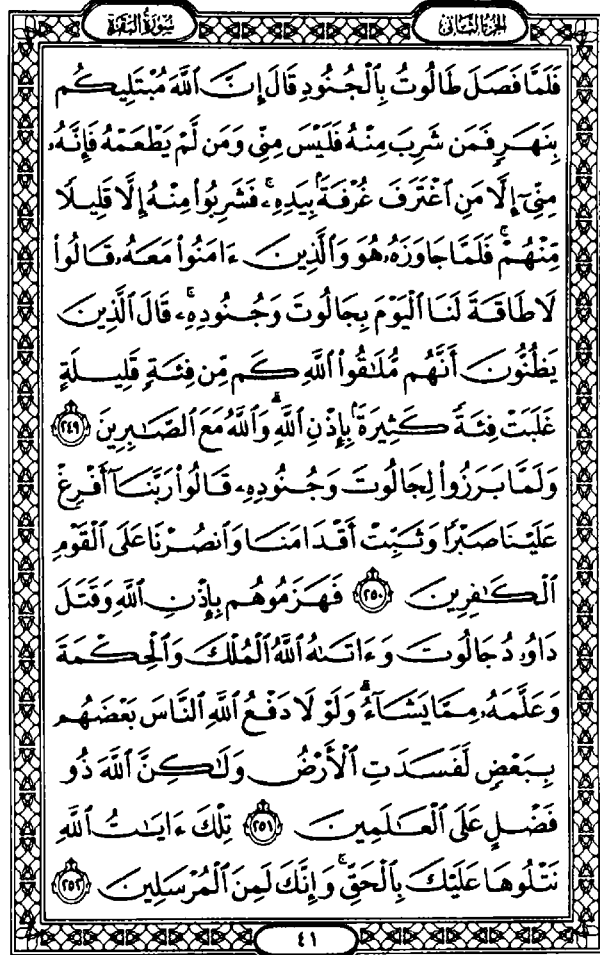 سُورَةُ البَقَرَةِ
الجُزْءُ الثَّانِي
فَلَمَّا فَصَلَ طَالُوتُ بِٱلْجُنُودِ قَالَ إِنَّ ٱللَّهَ مُبْتَلِيكُم
بِنَهَرٍ فَمَن شَرِبَ مِنْهُ فَلَيْسَ مِنِّى وَمَن لَّمْ يَطْعَمْهُ فَإِنَّهُۥ
مِنِّىٓ إِلَّا مَنِ ٱغْتَرَفَ غُرْفَةًۢ بِيَدِهِۦۚ فَشَرِبُوا۟ مِنْهُ إِلَّا قَلِيلًا
مِّنْهُمْۚ فَلَمَّا جَاوَزَهُۥ هُوَ وَٱلَّذِينَ ءَامَنُوا۟ مَعَهُۥ قَالُوا۟
لَا طَاقَةَ لَنَا ٱلْيَوْمَ بِجَالُوتَ وَجُنُودِهِۦۚ قَالَ ٱلَّذِينَ
يَظُنُّونَ أَنَّهُم مُّلَٰقُوا۟ ٱللَّهِ كَم مِّن فِئَةٍ قَلِيلَةٍ
غَلَبَتْ فِئَةً كَثِيرَةًۢ بِإِذْنِ ٱللَّهِۗ وَٱللَّهُ مَعَ ٱلصَّٰبِرِينَ ٢٤٩
وَلَمَّا بَرَزُوا۟ لِجَالُوتَ وَجُنُودِهِۦ قَالُوا۟ رَبَّنَآ أَفْرِغْ
عَلَيْنَا صَبْرًا وَثَبِّتْ أَقْدَامَنَا وَٱنصُرْنَا عَلَى ٱلْقَوْمِ
ٱلْكَٰفِرِينَ ٢٥٠ فَهَزَمُوهُم بِإِذْنِ ٱللَّهِ وَقَتَلَ
دَاوُۥدُ جَالُوتَ وَءَاتَىٰهُ ٱللَّهُ ٱلْمُلْكَ وَٱلْحِكْمَةَ
وَعَلَّمَهُۥ مِمَّا يَشَآءُۗ وَلَوْلَا دَفْعُ ٱللَّهِ ٱلنَّاسَ بَعْضَهُم
بِبَعْضٍ لَّفَسَدَتِ ٱلْأَرْضُ وَلَٰكِنَّ ٱللَّهَ ذُو
فَضْلٍ عَلَى ٱلْعَٰلَمِينَ ٢٥١ تِلْكَ ءَايَٰتُ ٱللَّهِ
نَتْلُوهَا عَلَيْكَ بِٱلْحَقِّۚ وَإِنَّكَ لَمِنَ ٱلْمُرْسَلِينَ ٢٥٢
٤١